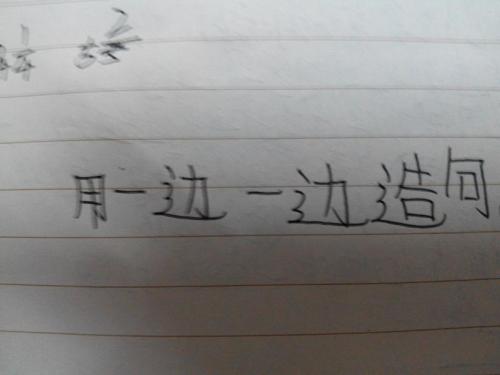 用一边一边造句